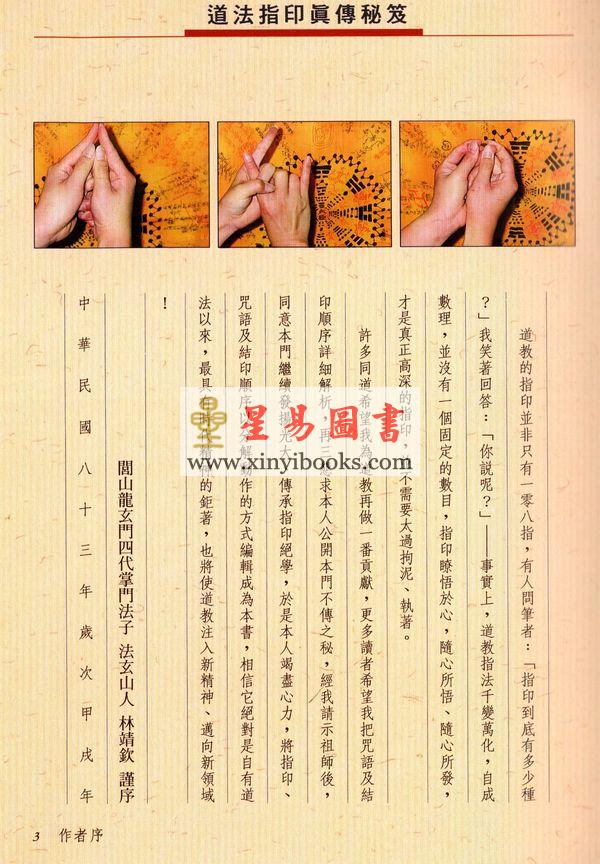 道法指印眞傳秘笈
道教的指印並非只有一零八指，有人問筆者：「指印到底有多少種
？」我笑著回答：「你說呢？」——事實上，道教指法千變萬化，自成
數理，並沒有一個固定的數目，指印瞭悟於心，隨心所悟、隨心所發，
才是真正高深的指印，不需要太過拘泥、執著。
許多同道希望我為道教再做一番貢獻，更多讀者希望我把咒語及結
印順序詳細解析，再三懇求本人公開本門不傳之秘，經我請示祖師後，
同意本門繼續發揚光大，傳承指印絕學，於是本人竭盡心力，將指印、
咒語及結印順序以分解動作的方式編輯成為本書，相信它絕對是自有道
法以來，最具有時代的鉅著，也將使道教注入新精神、邁向新領域
！
閭山龍玄門四代掌門法子 法玄山人 林靖欽 謹序
中華民國八十三年歲次甲戌年
星 星易圖書
www.xinyibooks.com
3 作者序